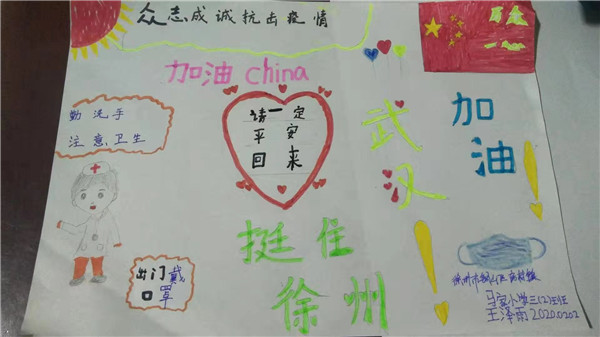 众志成诚抗击疫情
加油 china
勤洗手
注意卫生
请一定
平安
回来
武汉
加油
挺住
徐州
出门戴
口罩
马家小学三(2)班
王泽雨 20200202